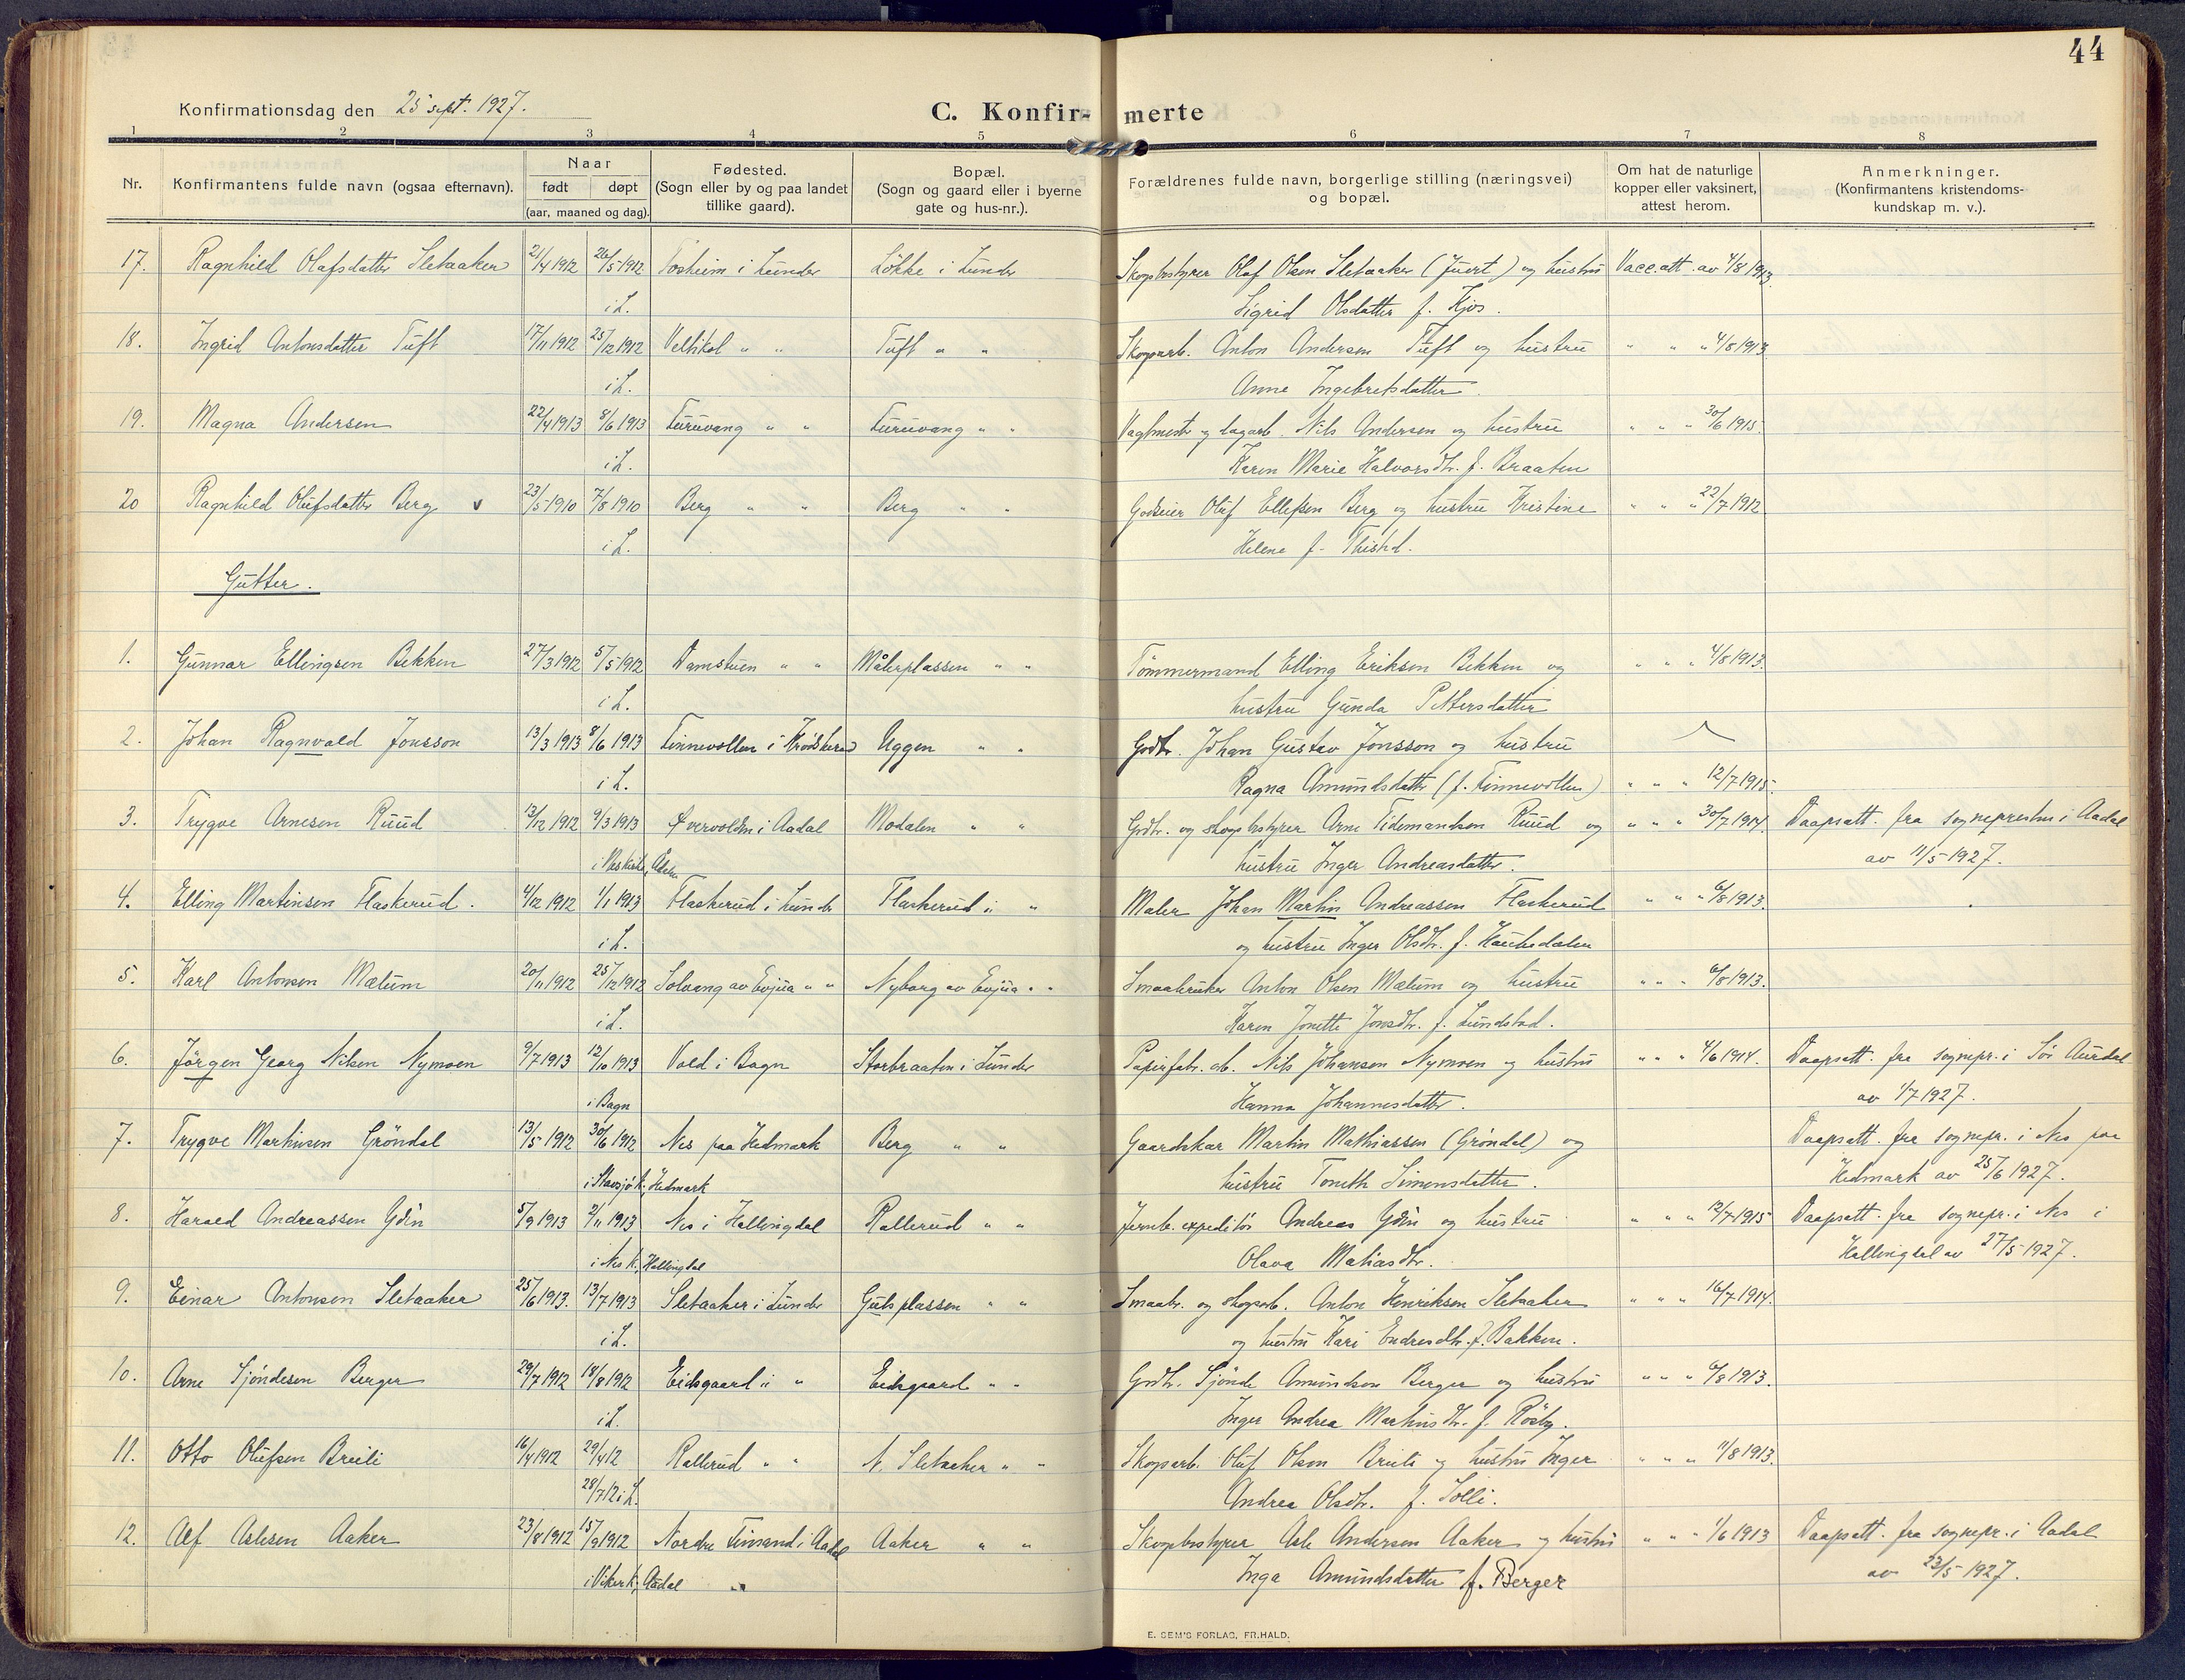 44
Konfirmationsdag den 25 sept. 1927.
C. Konfir- merte
1 2 3 4 5 6 7 8
Nr.
Konfirmantens fulde navn (ogsaa efternavn).
Naar
født døpt
(aar, maaned og dag).
Fødested.
(Sogn eller by og paa landet
tillike gaard).
Bopæl.
(Sogn og gaard eller i byerne
gate og hus-nr.).
Forældrenes fulde navn, borgerlige stilling (næringsvei)
og bopæl.
Om hat de naturlige
kopper eller vaksinert,
attest herom.
Anmerkninger.
(Konfirmantens kristendoms-
kundskap m. v.).
17. Ragnhild Olafsdatter Sletaaker 21/4 1912 26/5 1912 Tosheim i Lunder Løkke i Lunder Skogbestyrer Olaf Olsen Sletaaker (Juvet) og hustru Vacc.att. av 4/8 1913
i L. Sigrid Olsdatter f. Kjos.
18. Ingrid Antonsdatter Tuft 17/11 1912 25/12 1912 Veltikol " " Tuft " " Skogsarb. Anton Andersen Tuft og hustru " " " 4/8 1913
i L. Anne Ingebretsdatter.
19. Magna Andersen 22/4 1913 8/6 1913 Furuvang " " Furuvang " " Vagtmest. og dagarb. Nils Andersen og hustru " " " 30/6 1915.
i L. Karen Marie Halvorsdtr. f. Braaten
20 Ragnhild Olufsdatter Berg v 23/5 1910 7/8 1910 Berg " " Berg " " Godseier Oluf Ellefsen Berg og hustru Kristine " " " 22/7 1912
i L. Helene f. Thistul.
Gutter.
1. Gunnar Ellingsen Bekken 27/3 1912 5/5 1912 Damstuen " " Målerplassen " " Tömmermand Elling Eriksen Bekken og " " " 4/8 1913.
i L. hustru Gunda Pettersdatter
2. Johan Ragnvald Jonsson 13/3 1913 8/6 1913 Finnevollen i Krødsherad Uggen " " Grdbr. Johan Gustav Jonsson og hustru
i L. Ragna Amundsdatter (f. Finnevollen) " " " 12/7 1915.
3. Trygve Arnesen Ruud 13/12 1912 9/3 1913 Øvervolden i Aadal Modalen " " Grdbr. og skogbestyrer Arne Tidemandsen Ruud og " " " 30/7 1914. Daapsatt. fra sognepresten i Aadal
i Nes kirke, Ådalen hustru Inger Andreasdatter. av 11/5 1927.
4. Elling Martinsen Flaskerud. 4/12 1912 1/1 1913 Flaskerud i Lunder Flaskerud i " Maler Johan Martin Andreassen Flaskerud " " " 6/8 1913.
i L. og hustru Inger Olsdtr. f. Haukedalen
5. Karl Antonsen Mælum 20/11 1912 25/12 1912 Solvang av Evjua " " Nyborg av Evjua " " Smaabruker Anton Olsen Mælum og hustru " " " 6/8 1913.
i L. Karen Jonette Jonsdtr. f. Lundstad.
6. Jørgen Georg Nilsen Nymoen 9/7 1913 12/10 1913 Vold i Bagn Storbraaten i Lunder Papirfabr. arb. Nils Johansen Nymoen og hustru " " " 4/6 1914. Daapsatt. fra sognepr. i Sør Aurdal
i Bagn Hanna Johannesdatter. av 1/7 1927.
7. Trygve Martinsen Grøndal 13/5 1912 30/6 1912 Nes paa Hedmark Berg " " Gaardskar Martin Mathiassen (Grøndal) og Daapsatt. fra sognepr. i Nes paa
i Stavsjø k., Hedmark hustru Toneth Simensdatter. Hedmark av 25/6 1927.
8. Harald Andreassen Gdin 5/9 1913 2/11 1913 Nes i Hallingdal Rallerud " " Jernb. expeditør Andreas Gdin og hustru " " " 12/7 1915 Daapsatt. fra sognepr. i Nes i
i Nes k., Hallingdal Olava Matiasdtr. Hallingdal av 27/5 1927.
9. Einar Antonsen Sletaaker 25/6 1913. 13/7 1913 Sletaaker i Lunder Gutsplassen " " Smaabr. og skogsarb. Anton Henriksen Sletaaker " " " 16/7 1914.
i L. og hustru Kari Endresdtr. f. Bakken.
10. Arne Sjøndesen Berger 29/7 1912 18/8 1912 Eidsgaard i " Eidsgaard " " Grdbr. Sjønde Amundsen Berger og hustru " " " 6/8 1913.
i L. Inger Andrea Martinsdtr. f. Røsby.
11. Otto Olufsen Breili 16/4 1912 29/4 12 Rallerud " " N. Sletaaker " " Skogsarb. Oluf Olsen Breili og hustru Inger " " " 11/8 1913.
28/7 12 i L. Andrea Olsdtr. f. Solli.
12. Alf Aslesen Aaker 23/8 1912 15/9 1912 Nordre Finsand i Aadal Aaker " " Skogbestyrer Asle Andersen Aaker og hustru " " " 1/6 1913 Daapsatt. fra sognepr. i Aadal
i Viker k., Aadal " Inga Amundsdatter f. Berger av 23/5 1927.
E. SEM'S FORLAG, FR.HALD.